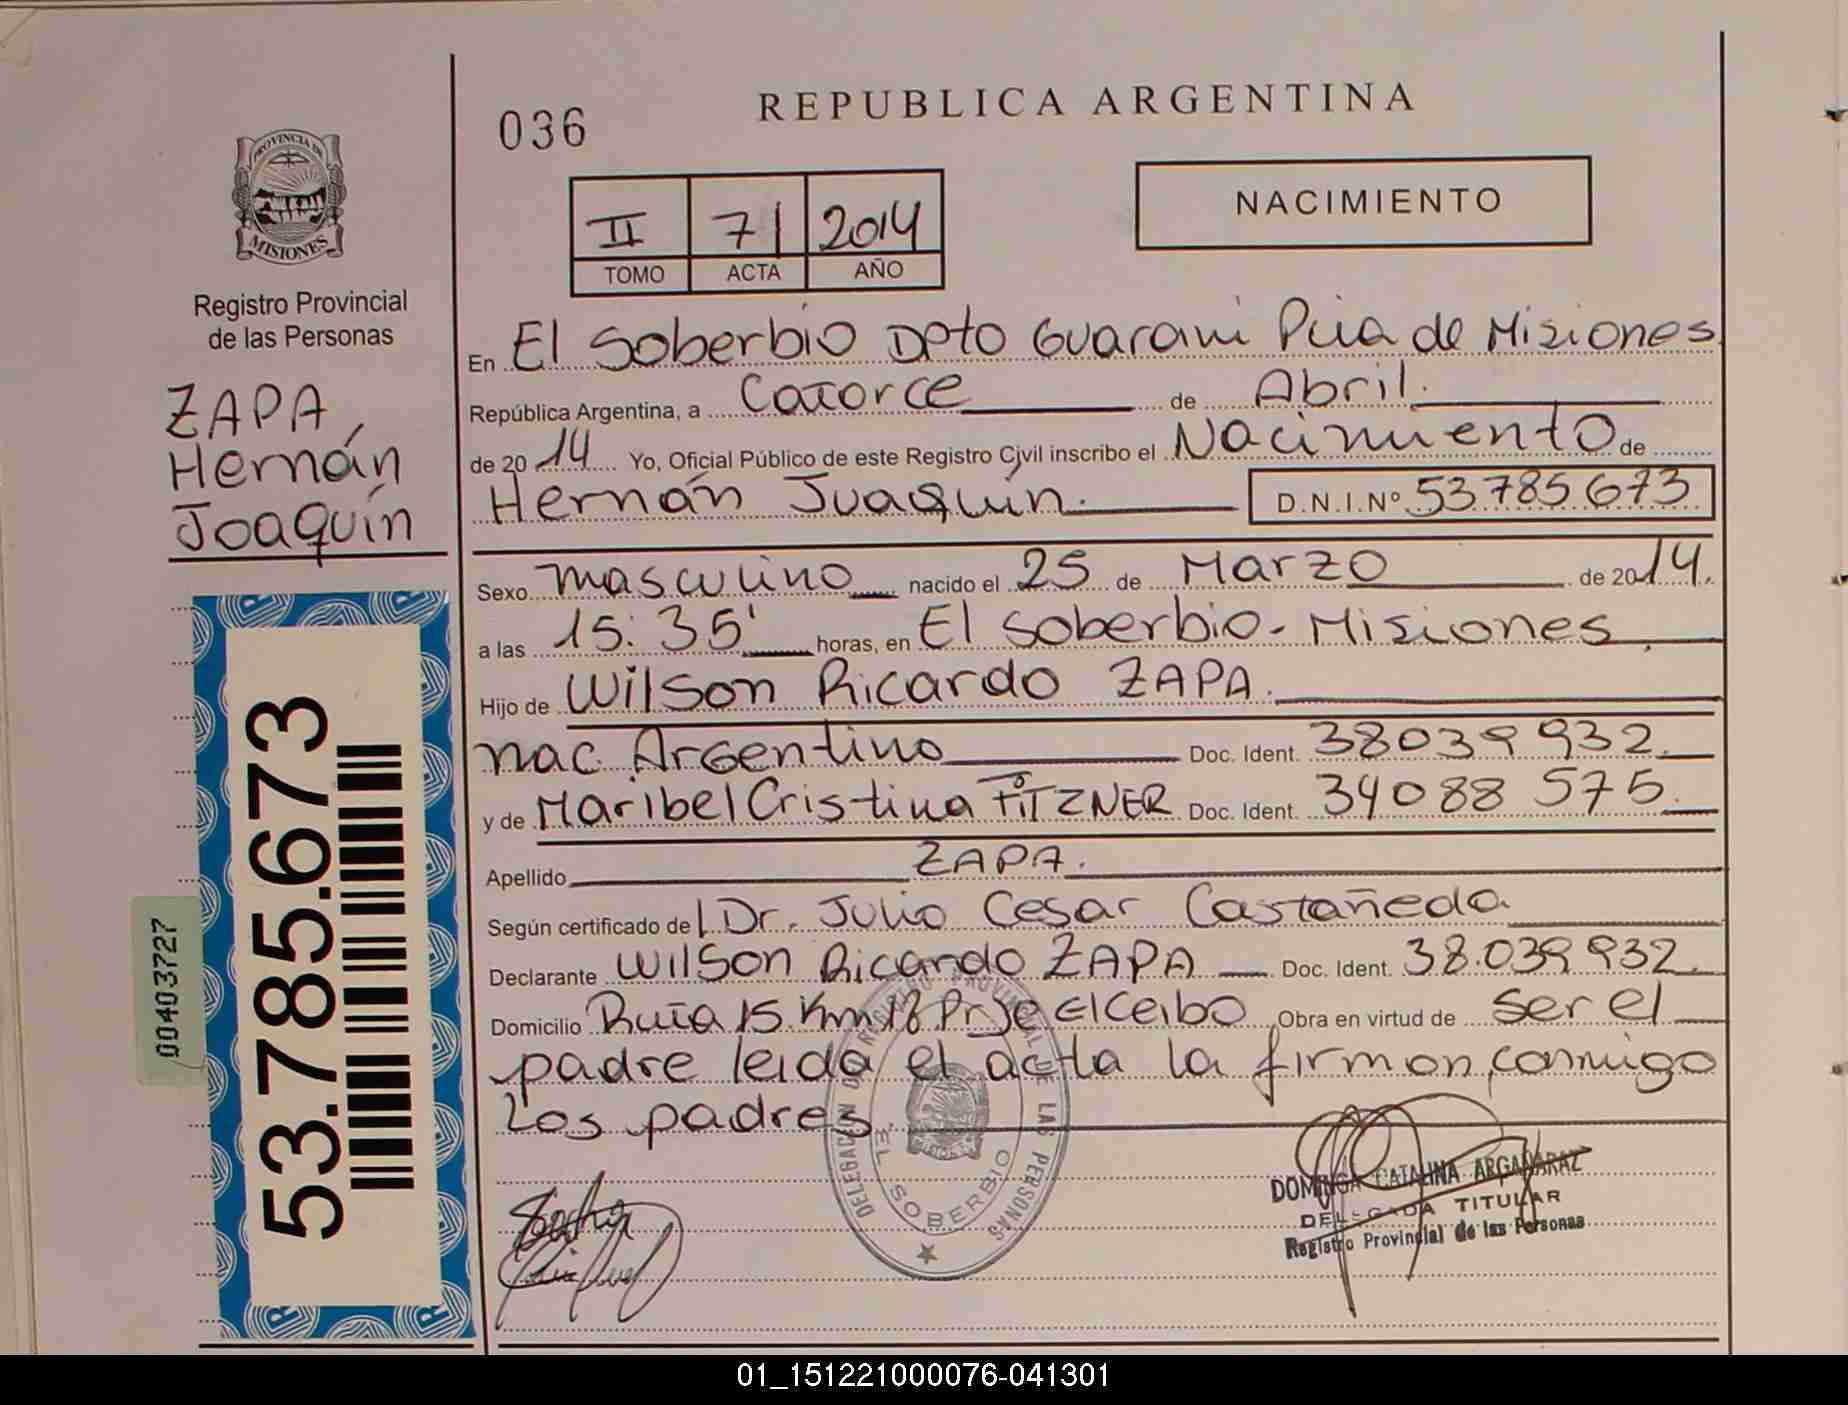 036
REPUBLICA ARGENTINA
PROVINCIA DE
MISIONES
Registro Provincial
de las Personas
ZAPA,
Hernán
Joaquín
II 71 2014
TOMO ACTA AÑO
NACIMIENTO
En El Soberbio Dpto Guarani Pcia de Misiones
República Argentina, a Catorce de Abril.
de 20 14 Yo, Oficial Público de este Registro Civil inscribo el Nacimiento de
Hernán Juaquín. D.N.I.Nº 53785673
Sexo masculino nacido el 25 de Marzo de 2014.
a las 15:35' horas, en El Soberbio - Misiones
Hijo de Wilson Ricardo ZAPA.
nac. Argentino Doc. Ident. 38039932.
y de Maribel Cristina FITZNER Doc. Ident. 34088575.
Apellido ZAPA.
Según certificado del Dr. Julio Cesar Castañeda
Declarante Wilson Ricardo ZAPA Doc. Ident. 38.039932.
Domicilio Ruta 15 Km 18 El Ceibo Obra en virtud de ser el
padre leida el acta la firman conmigo
Los padres
DELEGACION DE REGISTRO PROVINCIAL DE LAS PERSONAS
EL SOBERBIO
DOMINGA CATALINA ARGAÑARAZ
DELEGADA TITULAR
Registro Provincial de las Personas
53.785.673
00403727
01_151221000076-041301